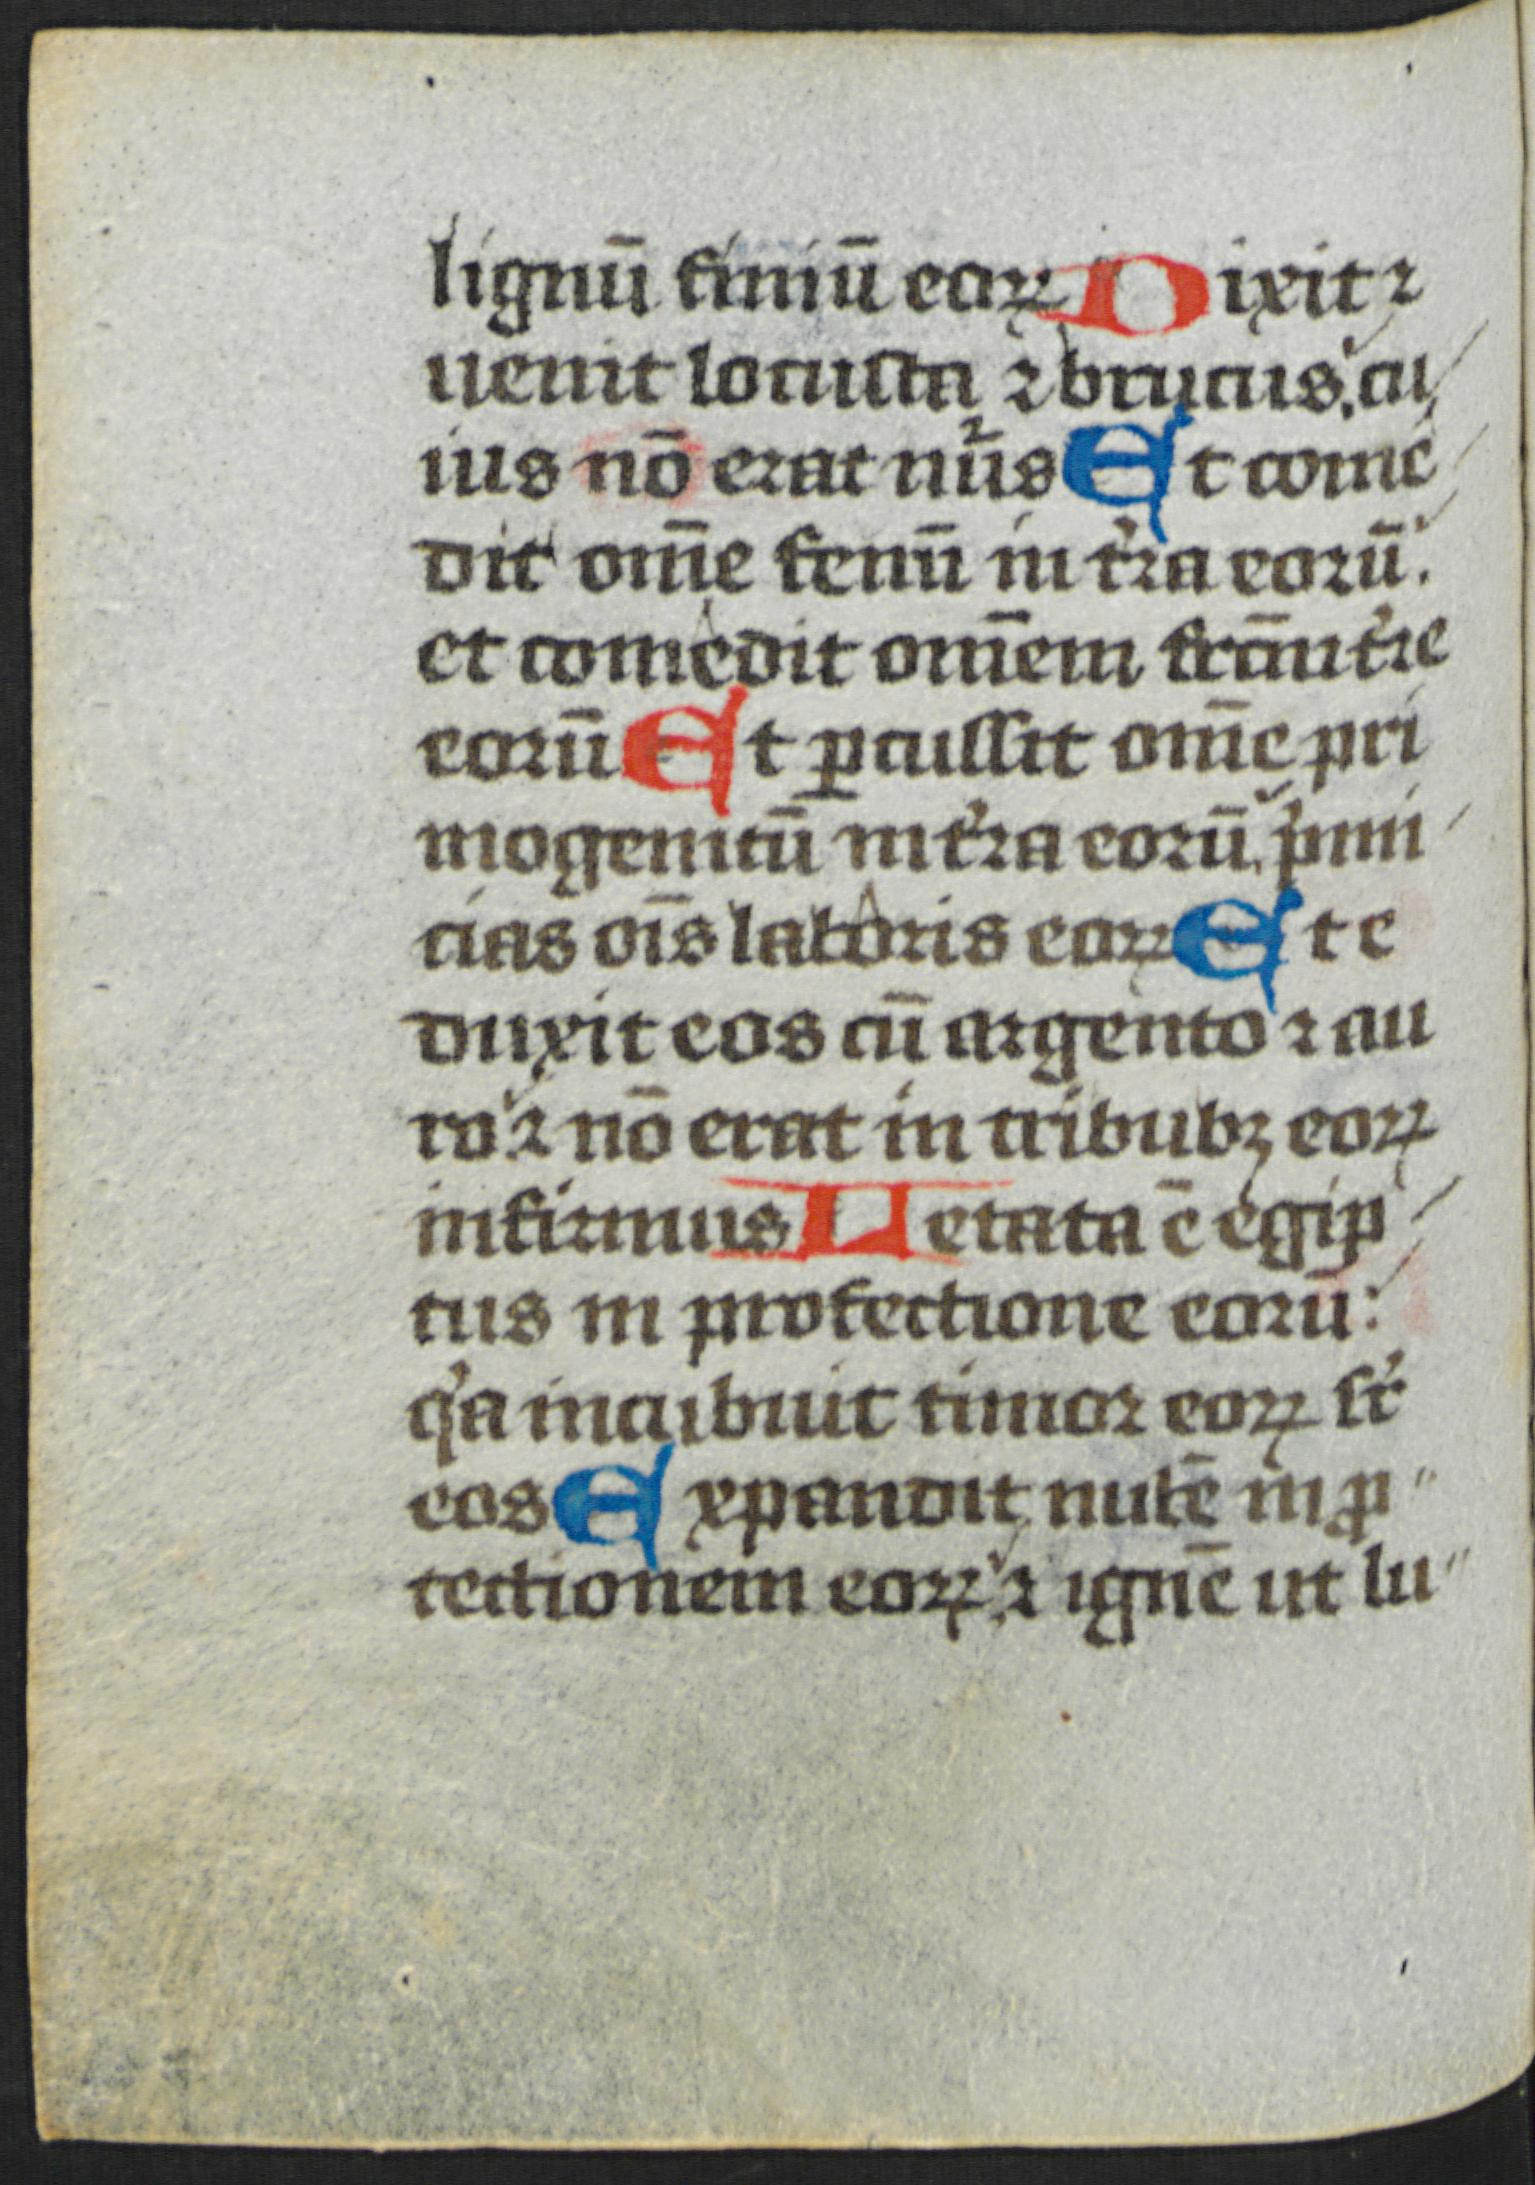 lignū finiū eoꝝ Dixit ⁊
uenit locusta ⁊ brucus. cu
ius nō erat nūs Et come
dit om̄e fenū in t'ra eorū.
et comedit om̄em fr̄a in t're
eorū Et ꝑcussit om̄e pri
mogenitū in t'ra eorū. p'mi
cias oīs laboris eoꝝ Et e
duxit eos cū argento ⁊ au
ro ⁊ nō erat in tribubꝫ eoꝝ
infirmus Letata ē egip
tus in profectione eorū:
q'a incubuit timor eoꝝ sr̄
eos Expandit nubē in ꝓ
tectionem eoꝝ ⁊ ignē ut lu